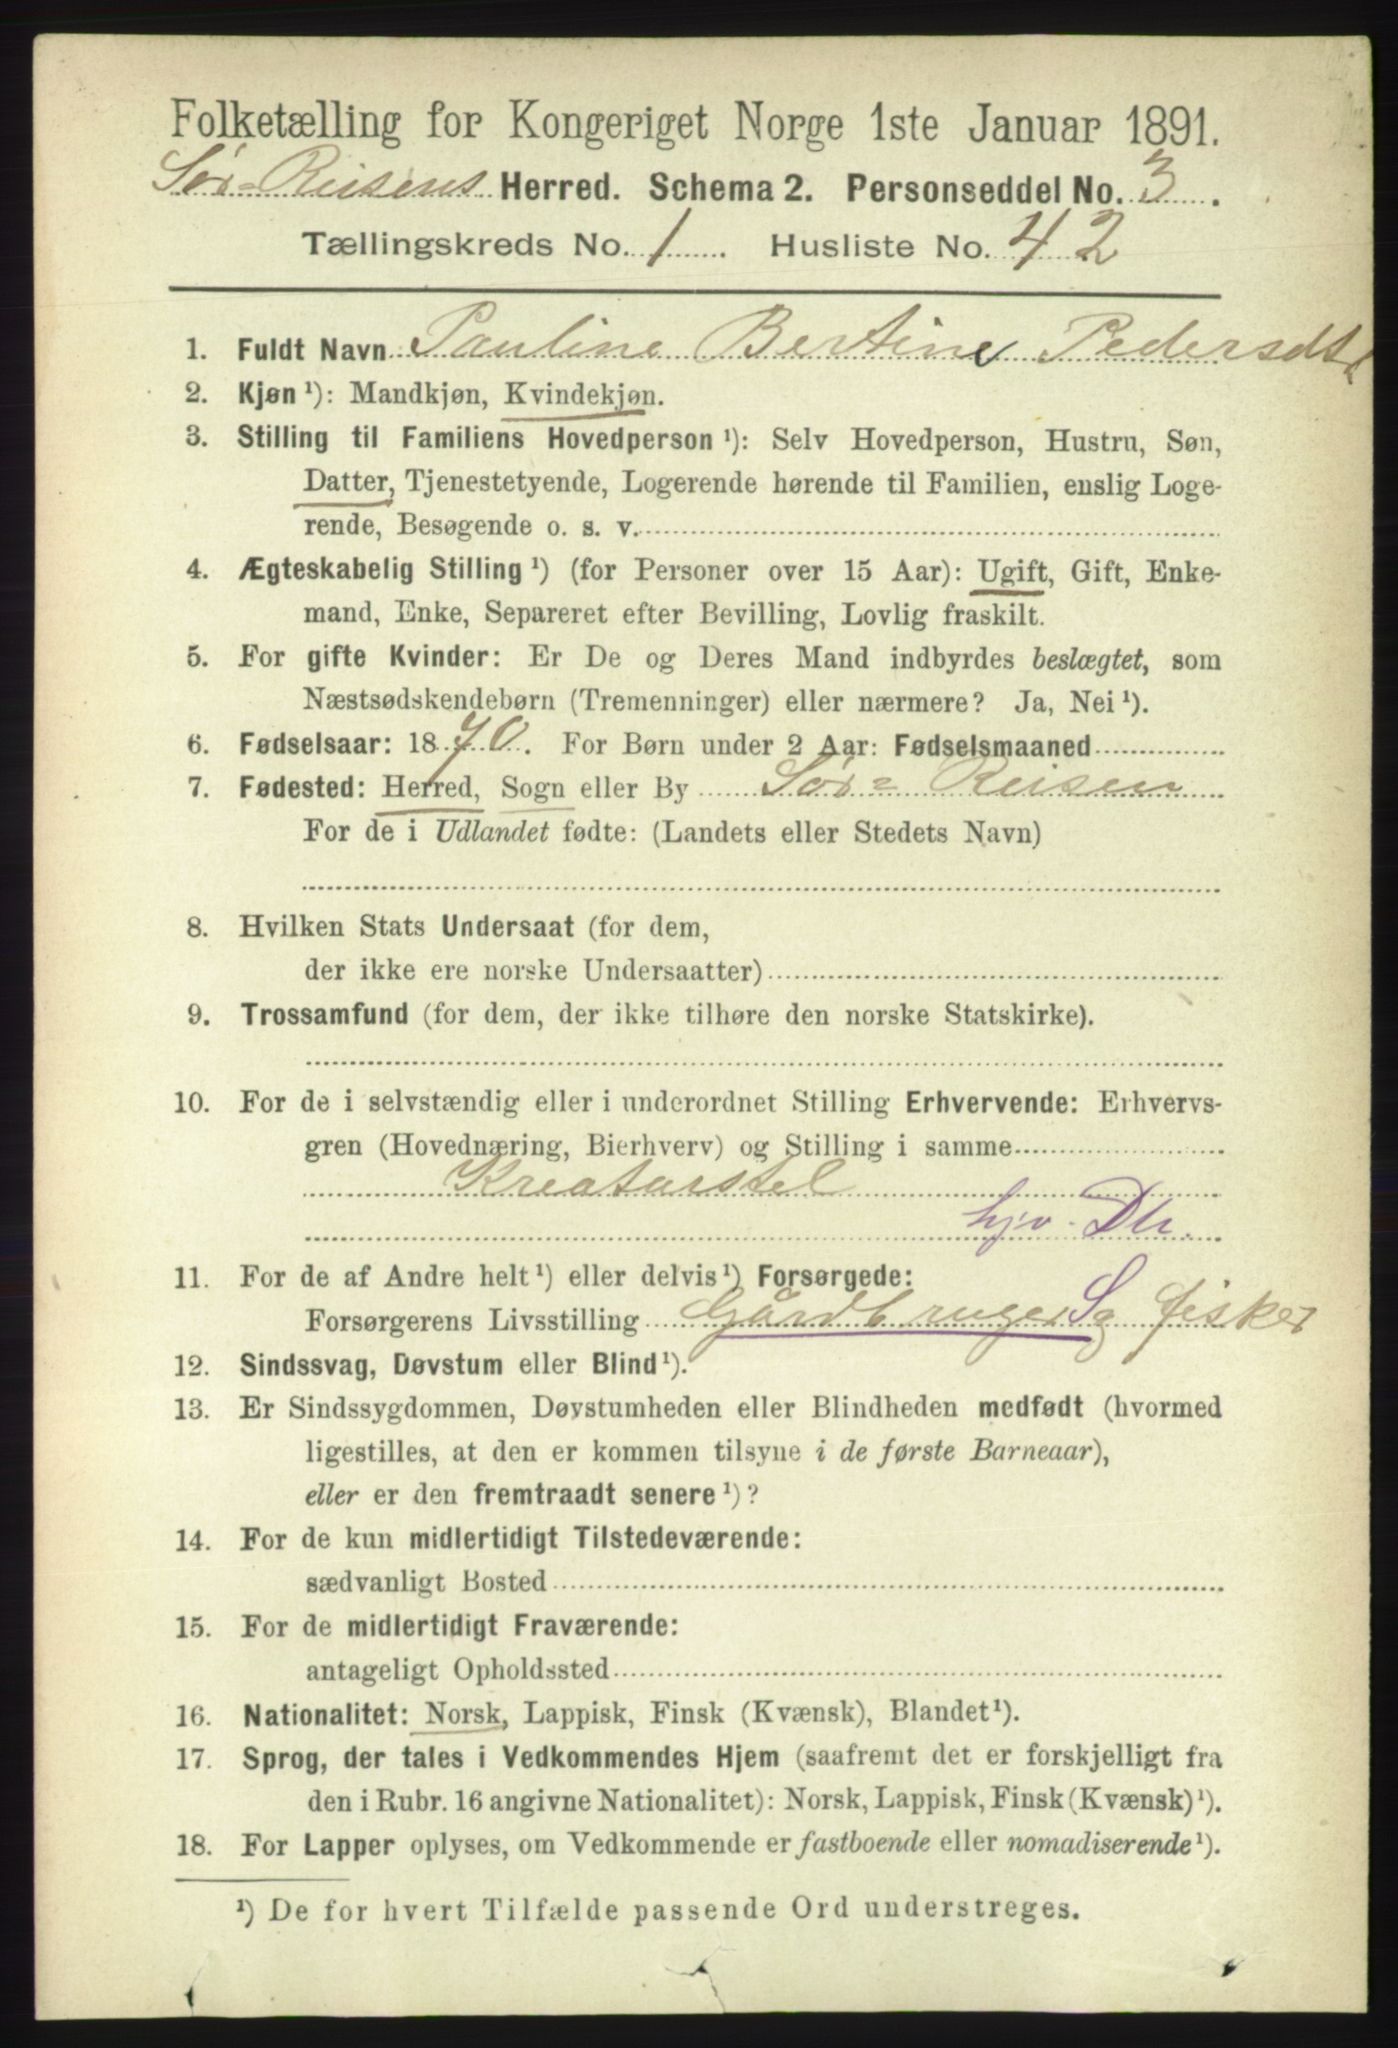 Folketælling for Kongeriget Norge 1ste Januar 1891.
Sør-Reisens Herred. Schema 2. Personseddel No. 3.
Tællingskreds No. 1. Husliste No. 42
1. Fuldt Navn Pauline Bertine Pedersdt
2. Kjøn ¹): Mandkjøn, Kvindekjøn.
3. Stilling til Familiens Hovedperson ¹): Selv Hovedperson, Hustru, Søn,
Datter, Tjenestetyende, Logerende hørende til Familien, enslig Loge-
rende, Besøgende o. s. v.
4. Ægteskabelig Stilling ¹) (for Personer over 15 Aar): Ugift, Gift, Enke-
mand, Enke, Separeret efter Bevilling, Lovlig fraskilt.
5. For gifte Kvinder: Er De og Deres Mand indbyrdes beslægtet, som
Næstsødskendebørn (Tremenninger) eller nærmere? Ja, Nei ¹).
6. Fødselsaar: 1870. For Børn under 2 Aar: Fødselsmaaned
7. Fødested: Herred, Sogn eller By Sør-Reisen
For de i Udlandet fødte: (Landets eller Stedets Navn)
8. Hvilken Stats Undersaat (for dem,
der ikke ere norske Undersaatter)
9. Trossamfund (for dem, der ikke tilhøre den norske Statskirke).
10. For de i selvstændig eller i underordnet Stilling Erhvervende: Erhvervs-
gren (Hovednæring, Bierhverv) og Stilling i samme
Kreaturstel
hjv. Dtr.
11. For de af Andre helt ¹) eller delvis ¹) Forsørgede:
Forsørgerens Livsstilling Gårdbruger S og fisker
12. Sindssvag, Døvstum eller Blind ¹).
13. Er Sindssygdommen, Døvstumheden eller Blindheden medfødt (hvormed
ligestilles, at den er kommen tilsyne i de første Barneaar),
eller er den fremtraadt senere ¹)?
14. For de kun midlertidigt Tilstedeværende:
sædvanligt Bosted
15. For de midlertidigt Fraværende:
antageligt Opholdssted
16. Nationalitet: Norsk, Lappisk, Finsk (Kvænsk), Blandet ¹).
17. Sprog, der tales i Vedkommendes Hjem (saafremt det er forskjelligt fra
den i Rubr. 16 angivne Nationalitet): Norsk, Lappisk, Finsk (Kvænsk) ¹).
18. For Lapper oplyses, om Vedkommende er fastboende eller nomadiserende ¹).
¹) De for hvert Tilfælde passende Ord understreges.